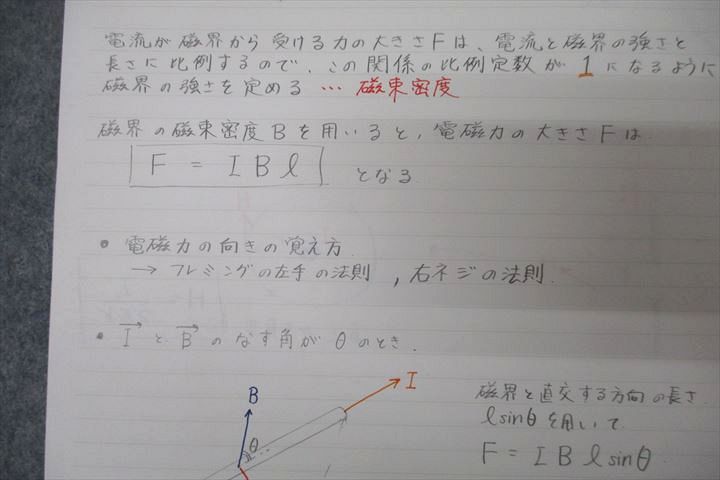 電流が磁界から受ける力の大きさFは、電流と磁界の強さと
長さに比例するので、この関係の比例定数が 1 になるように
磁界の強さを定める … 磁束密度
磁界の磁束密度Bを用いると、電磁力の大きさFは
F = I B l となる
• 電磁力の向きの覚え方.
→ フレミングの左手の法則 , 右ネジの法則.
• I→ と B→ のなす角が θ のとき.
B
I
θ
磁界と直交する方向の長さ
l sinθ を用いて
F = I B l sinθ